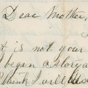 Dear Mother,
t is not your
began a
think I will